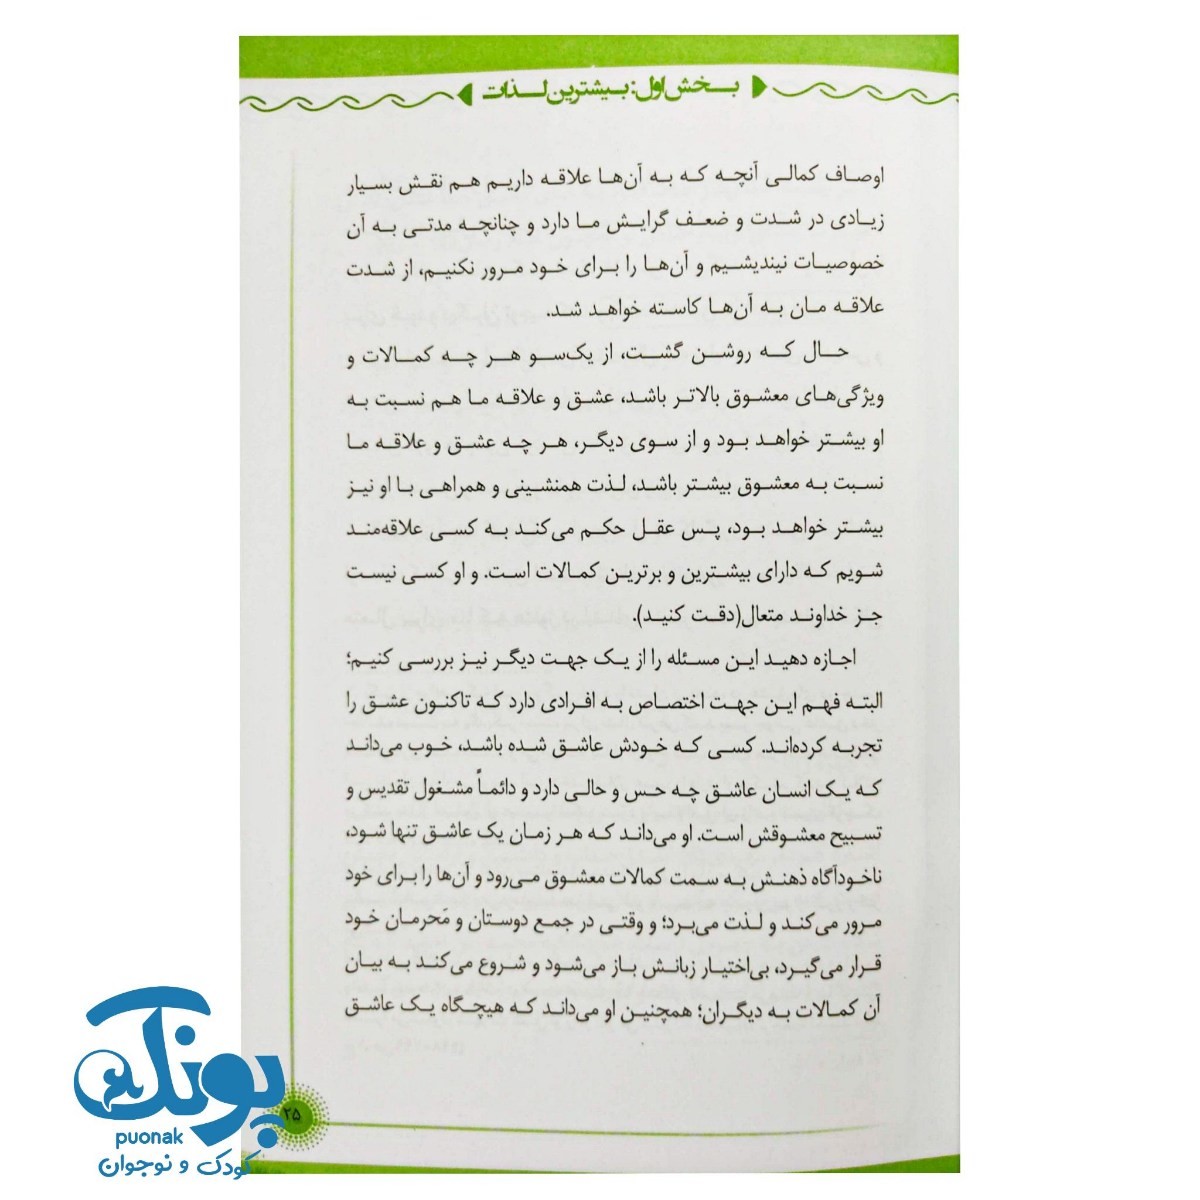 بخش اول: بیشترین لذات
اوصاف کمالی آنچه که به آن‌ها علاقه داریم هم نقش بسیار
زیادی در شدت و ضعف گرایش ما دارد و چنانچه مدتی به آن
خصوصیات نیندیشیم و آن‌ها را برای خود مرور نکنیم، از شدت
علاقه مان به آن‌ها کاسته خواهد شد.
حال که روشن گشت، از یک‌سو هر چه کمالات و
ویژگی‌های معشوق بالاتر باشد، عشق و علاقه ما هم نسبت به
او بیشتر خواهد بود و از سوی دیگر، هر چه عشق و علاقه ما
نسبت به معشوق بیشتر باشد، لذت همنشینی و همراهی با او نیز
بیشتر خواهد بود، پس عقل حکم می‌کند به کسی علاقه‌مند
شویم که دارای بیشترین و برترین کمالات است. و او کسی نیست
جز خداوند متعال(دقت کنید).
اجازه دهید این مسئله را از یک جهت دیگر نیز بررسی کنیم؛
البته فهم این جهت اختصاص به افرادی دارد که تاکنون عشق را
تجربه کرده‌اند. کسی که خودش عاشق شده باشد، خوب می‌داند
که یک انسان عاشق چه حس و حالی دارد و دائماً مشغول تقدیس و
تسبیح معشوقش است. او می‌داند که هر زمان یک عاشق تنها شود،
ناخودآگاه ذهنش به سمت کمالات معشوق می‌رود و آن‌ها را برای خود
مرور می‌کند و لذت می‌برد؛ و وقتی در جمع دوستان و مَحرمان خود
قرار می‌گیرد، بی‌اختیار زبانش باز می‌شود و شروع می‌کند به بیان
آن کمالات به دیگران؛ همچنین او می‌داند که هیچگاه یک عاشق
۲۵
پونک
puonak
کودک و نوجوان